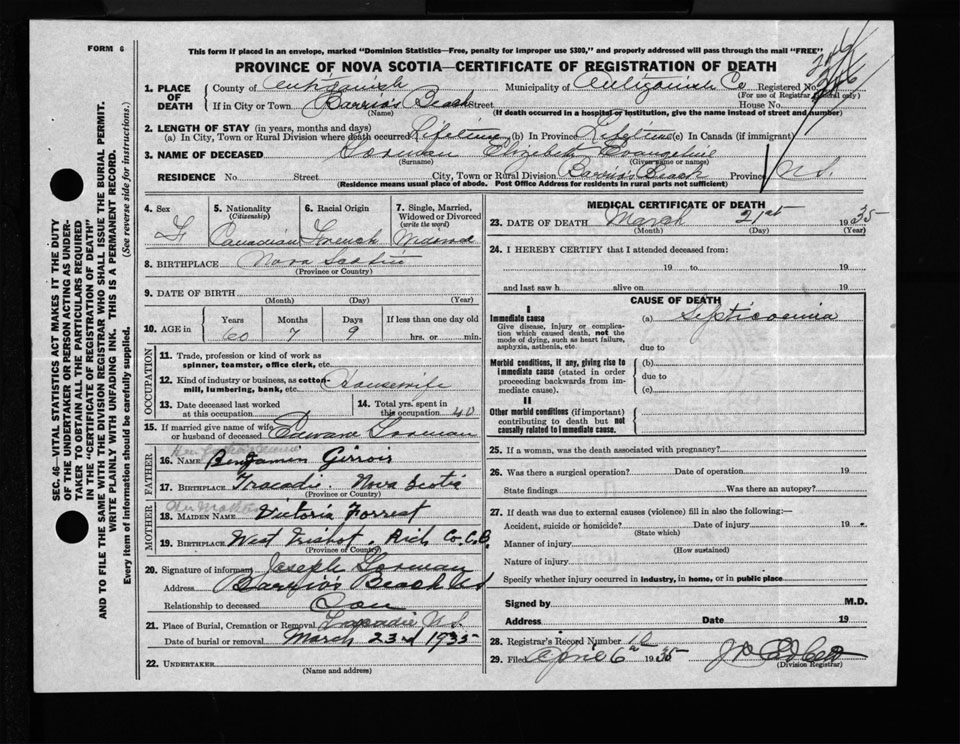 FORM 6
This form if placed in an envelope, marked "Dominion Statistics—Free, penalty for improper use $300," and properly addressed will pass through the mail "FREE"
PROVINCE OF NOVA SCOTIA—CERTIFICATE OF REGISTRATION OF DEATH
SEC. 46—VITAL STATISTICS ACT MAKES IT THE DUTY
OF THE UNDERTAKER OR PERSON ACTING AS UNDER-
TAKER TO OBTAIN ALL THE PARTICULARS REQUIRED
IN THE "CERTIFICATE OF REGISTRATION OF DEATH"
AND TO FILE THE SAME WITH THE DIVISION REGISTRAR WHO SHALL ISSUE THE BURIAL PERMIT.
WRITE PLAINLY WITH UNFADING INK. THIS IS A PERMANENT RECORD.
Every item of information should be carefully supplied. (See reverse side for instructions.)
1. PLACE OF DEATH
County of Antigonish Municipality of Antigonish Co Registered No.
(For use of Registrar General only)
If in City or Town Barrio's Beach Street House No.
(Name) (If death occurred in a hospital or institution, give the name instead of street and number)
2. LENGTH OF STAY (in years, months and days)
(a) In City, Town or Rural Division where death occurred Lifetime (b) In Province Lifetime (c) In Canada (if immigrant)
3. NAME OF DECEASED Gorman Elizabeth Evangeline
(Surname) (Given name or names)
RESIDENCE No. Street City, Town or Rural Division Barrio's Beach Province N.S.
(Residence means usual place of abode. Post Office Address for residents in rural parts not sufficient)
4. Sex F
5. Nationality (Citizenship) Canadian
6. Racial Origin French
7. Single, Married, Widowed or Divorced (write the word) Widowed
8. BIRTHPLACE Nova Scotia
(Province or Country)
9. DATE OF BIRTH
(Month) (Day) (Year)
10. AGE in Years Months Days If less than one day old
60 7 9 hrs. or min.
OCCUPATION
11. Trade, profession or kind of work as
spinner, teamster, office clerk, etc.
12. Kind of industry or business, as cotton-
mill, lumbering, bank, etc. Housewife
13. Date deceased last worked
at this occupation
14. Total yrs. spent in
this occupation 40
15. If married give name of wife
or husband of deceased Edward Gorman
FATHER
16. NAME Benjamin Girrois
17. BIRTHPLACE Tracadie Nova Scotia
(Province or Country)
MOTHER
18. MAIDEN NAME Victoria Forrest
19. BIRTHPLACE West Rich Co. C.B.
(Province or Country)
20. Signature of informant Joseph Gorman
Address Barrio's Beach
Relationship to deceased Son
21. Place of Burial, Cremation or Removal Tracadie N.S.
Date of burial or removal March 23rd 1935
22. UNDERTAKER
(Name and address)
MEDICAL CERTIFICATE OF DEATH
23. DATE OF DEATH March 21st 1935
(Month) (Day) (Year)
24. I HEREBY CERTIFY that I attended deceased from:
19 to 19
and last saw h alive on 19
CAUSE OF DEATH
I
Immediate cause (a) Septicoemia
Give disease, injury or complica-
tion which caused death, not the
mode of dying, such as heart failure,
asphyxia, asthenia, etc.
due to
Morbid conditions, if any, giving rise to
immediate cause (stated in order
proceeding backwards from im-
mediate cause).
(b)
due to
(c)
II
Other morbid conditions (if important)
contributing to death but not
causally related to immediate cause.
25. If a woman, was the death associated with pregnancy?
26. Was there a surgical operation? Date of operation 19
State findings Was there an autopsy?
27. If death was due to external causes (violence) fill in also the following:—
Accident, suicide or homicide? Date of injury 19
(State which)
Manner of injury
(How sustained)
Nature of injury
Specify whether injury occurred in industry, in home, or in public place
Signed by M.D.
Address Date 19
28. Registrar's Record Number 12
29. Filed April 6th 1935
(Division Registrar)